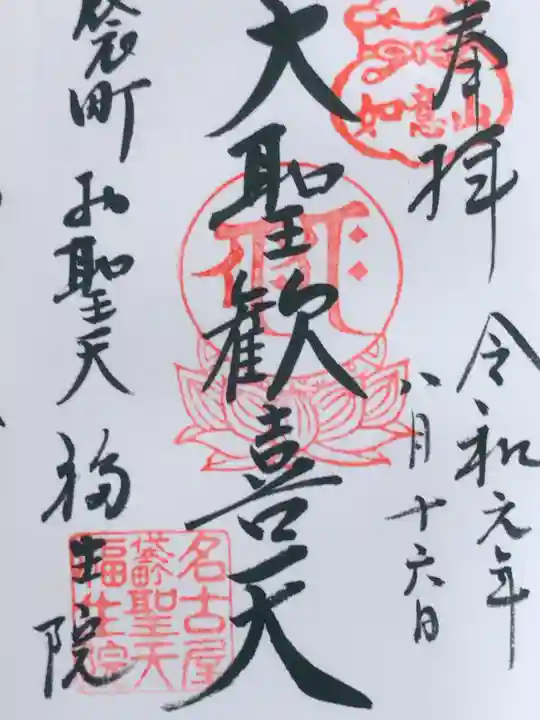 奉拝
令和元年
八月十六日
如意山
大聖歓喜天
袋町 お聖天 福生院
名古屋
袋町聖天
福生院